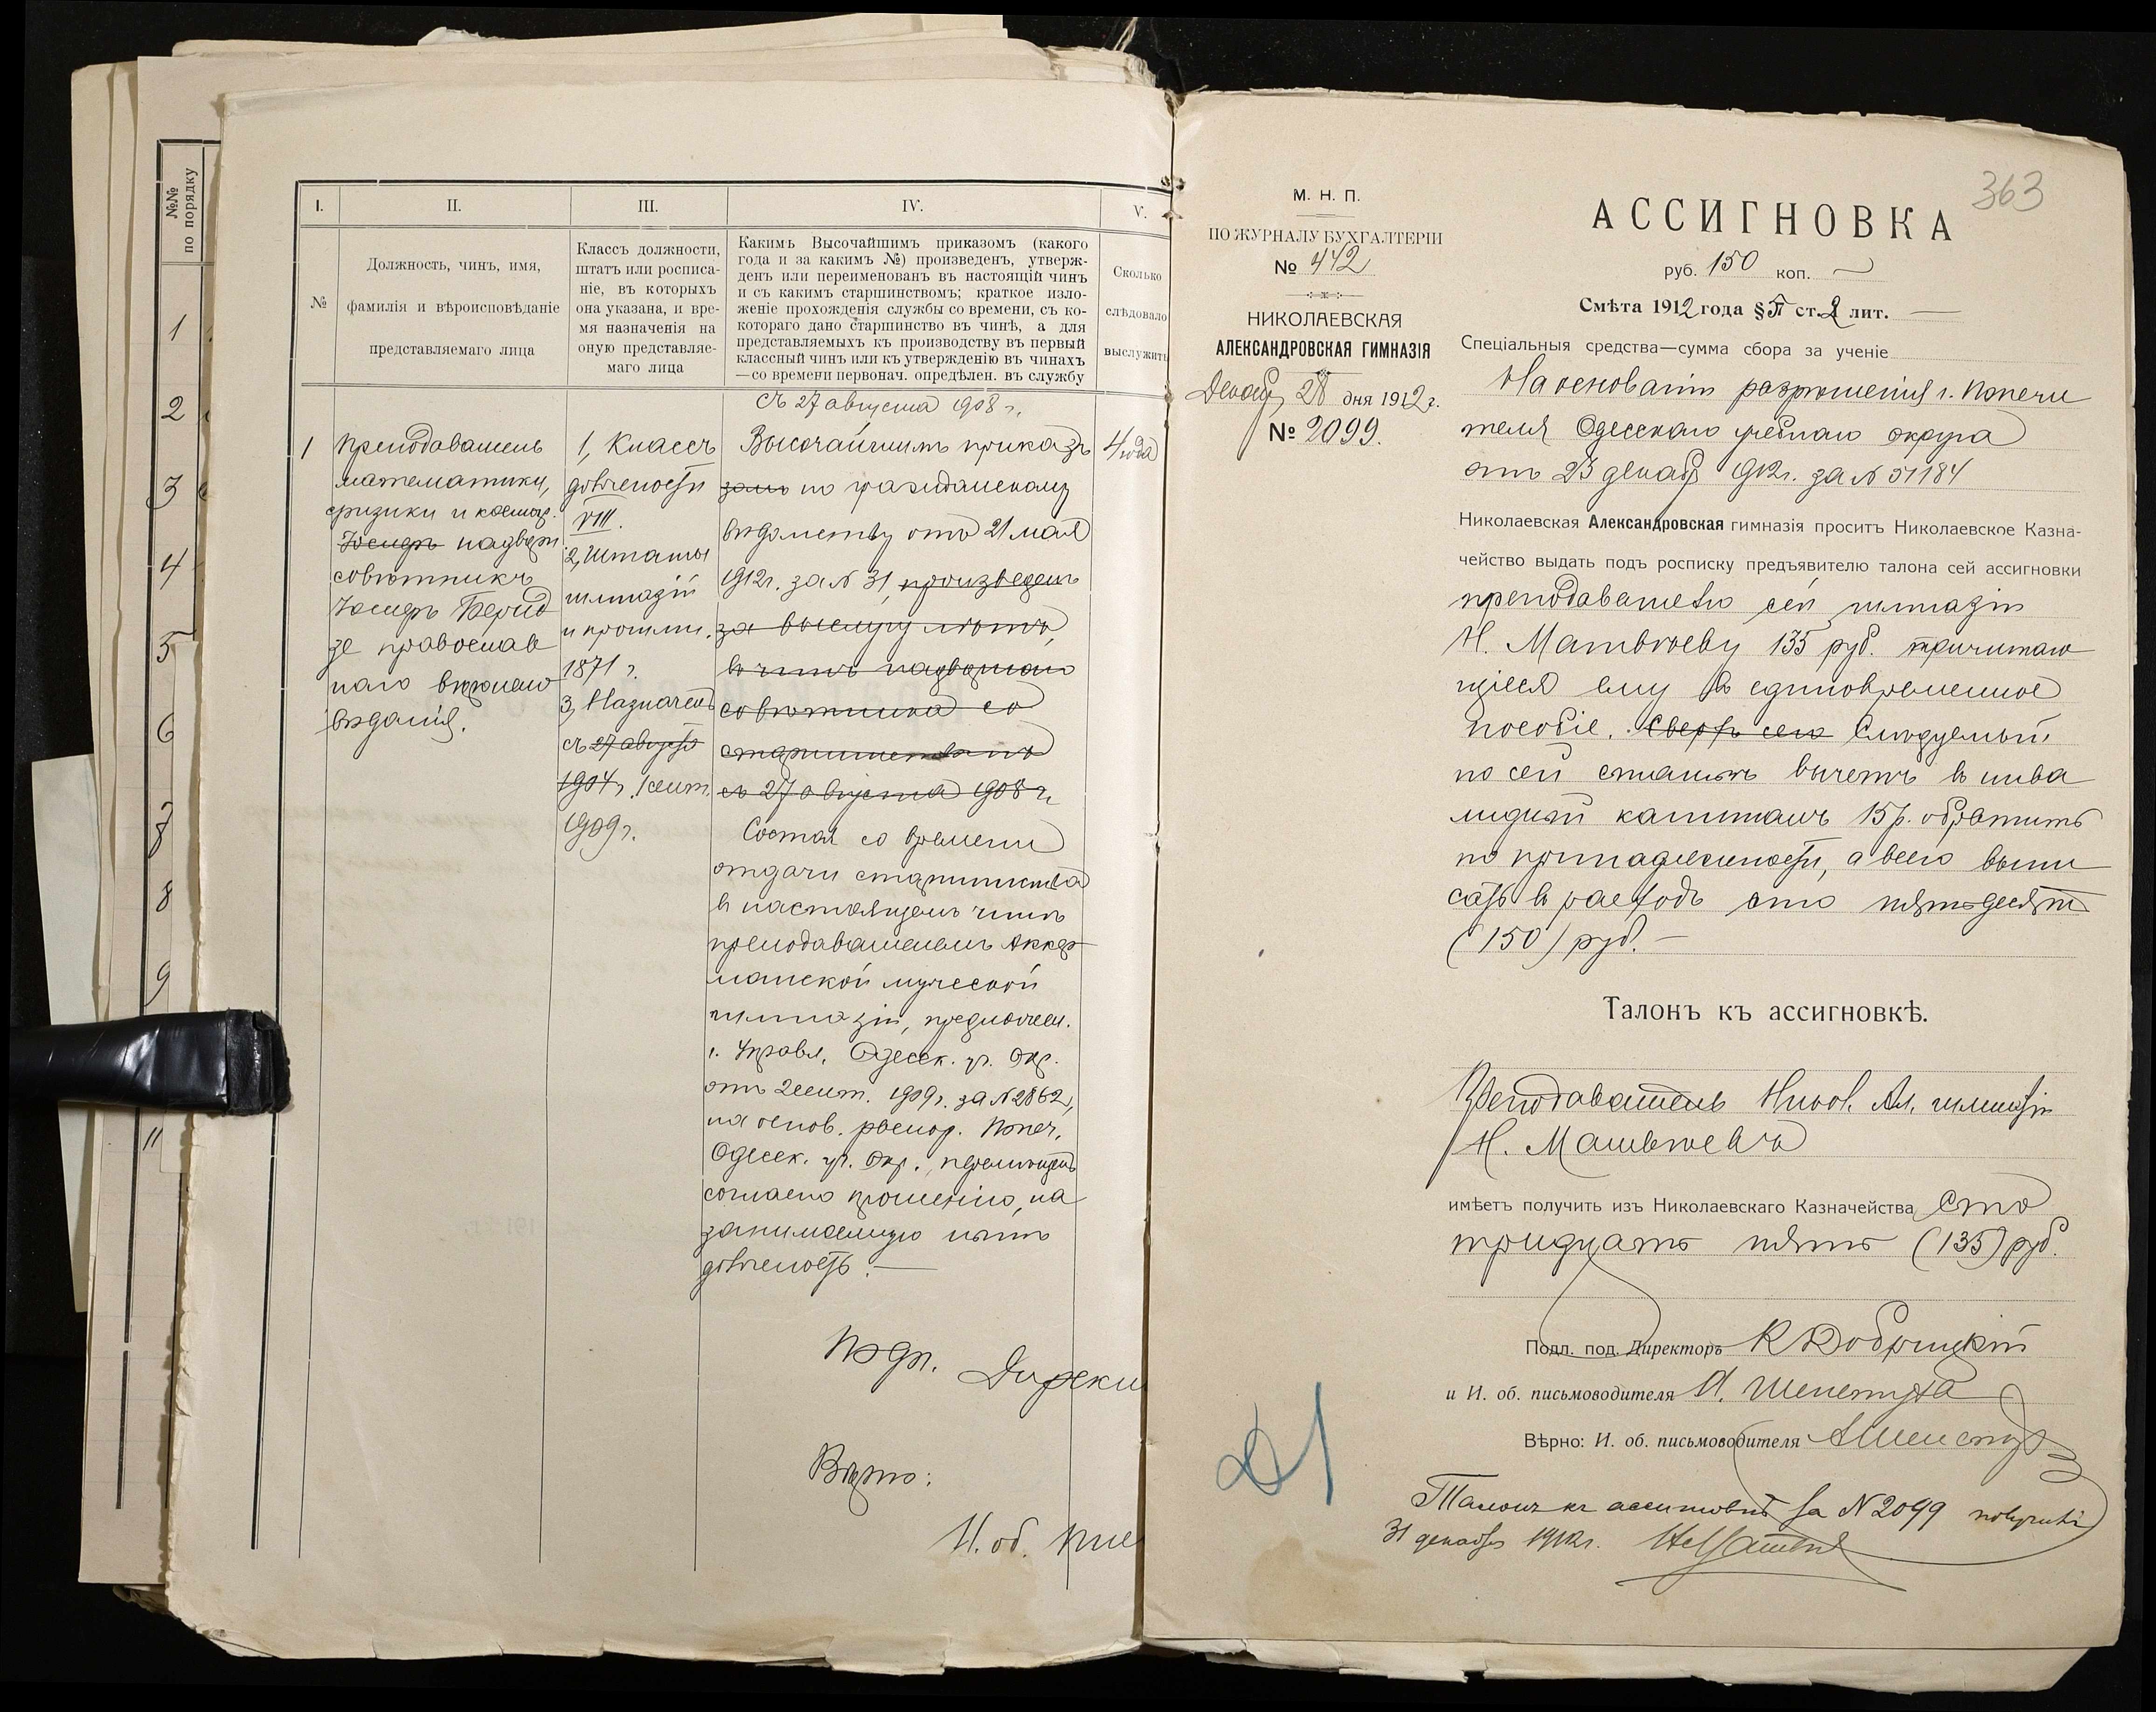 №№
по порядку
1
2
3
4
5
6
7
8
9
11
I.
II.
III.
IV.
V.
№
Должность, чинъ, имя,
фамилія и вѣроисповѣданіе
представляемаго лица
Классъ должности,
штатъ или росписа-
ніе, въ которыхъ
она указана, и вре-
мя назначенія на
оную представляе-
маго лица
Какимъ Высочайшимъ приказомъ (какого
года и за какимъ №) произведенъ, утверж-
денъ или переименованъ въ настоящій чинъ
и съ какимъ старшинствомъ; краткое изло-
женіе прохожденія службы со времени, съ ко-
котораго дано старшинство въ чинѣ, а для
представляемыхъ къ производству въ первый
классный чинъ или къ утвержденію въ чинахъ
—со времени первонач. опредѣлен. въ службу
Сколько
слѣдовало
выслужить
1
Преподаватель
математики,
физики и космогр.
Іосифъ надворн
совѣтникъ
Іосифъ
православ
наго вѣроиспо
вѣданія.
1, Классъ
должности
VIII.
2, Штаты
гимназій
и прогимн.
1871 г.
3, Назначенъ
съ 27 августа
1904 г. 1 сент.
1909 г.
съ 27 августа 1908 г.
Высочайшимъ приказъ
зомъ по гражданскому
вѣдомству отъ 21 мая
1912 г. за № 31, произведенъ
за выслугу лѣтъ,
въ чинъ надворнаго
совѣтника со
старшинствомъ
съ 27 августа 1908 г.
Состоя со времени
отдачи старшинства
въ настоящемъ чинѣ
преподавателемъ Аккер
манской мужской
гимназіи, предложен.
г. Управл. Одесск. уч. Окр.
отъ 2 сент. 1909 г. за № 2862,
на основ. распор. Попеч.
Одесск. уч. Окр., перемѣщенъ
согласно прошенію, на
занимаемую нынѣ
должность. —
4 года
Подп. Дирек
Вѣрно:
И. об. пис
М. Н. П.
ПО ЖУРНАЛУ БУХГАЛТЕРІИ
№ 442
НИКОЛАЕВСКАЯ
АЛЕКСАНДРОВСКАЯ ГИМНАЗІЯ
Декабр. 28 дня 1912 г.
№ 2099.
363
АССИГНОВКА
руб. 150 коп. —
Смѣта 1912 года § 5 ст. 2 лит. —
Спеціальныя средства—сумма сбора за ученіе
На основаніи разрѣшенія г. Попечи
теля Одесскаго учебнаго округа
отъ 23 декабр 1912 г. за № 51184
Николаевская Александровская гимназія проситъ Николаевское Казна-
чейство выдать подъ росписку предъявителю талона сей ассигновки
преподавателю сей гимназіи
Н. Матвѣеву 135 руб. причитаю
щіеся ему въ единовременное
пособіе. Сверхъ сего Слѣдуемый
по сей статьѣ вычетъ въ инва
лидный капиталъ 15 р. обратить
по принадлежности, а всего выпи
сать въ расходъ сто пятьдесятъ
(150) руб. —
Талонъ къ ассигновкѣ.
Преподаватель Никол. Ал. гимназіи
Н. Матвѣевъ
имѣетъ получить изъ Николаевскаго Казначейства Сто
тридцать пять (135) руб.
Подл. под. Директоръ К Добрицкій
и И. об. письмоводителя А. Шепетуха
Вѣрно: И. об. письмоводителя АШепетуха
21
Талонъ къ ассигновкѣ за № 2099 получилъ
31 декабря 1912 г.